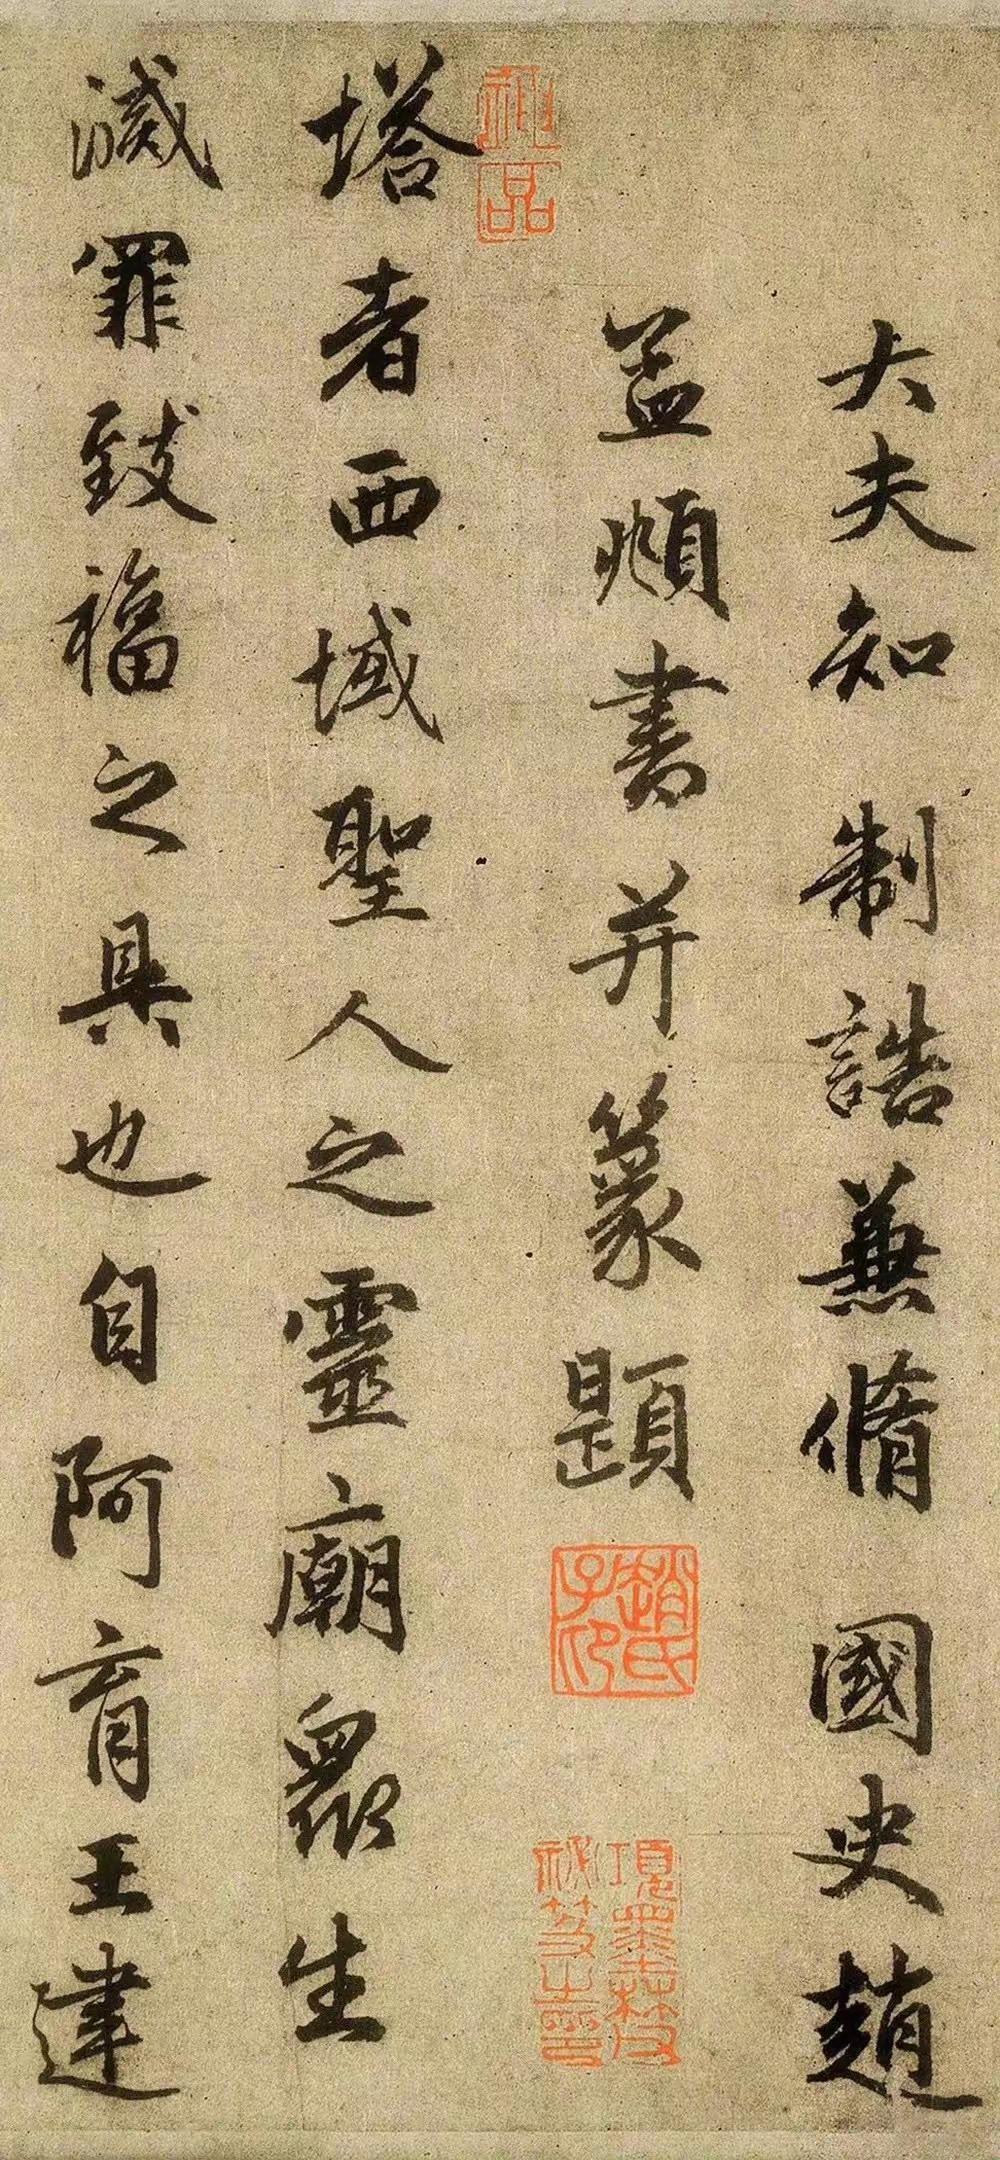 大夫知制誥兼脩國史趙
孟頫書并篆題
塔者西域聖人之靈廟眾生
滅罪致福之具也自阿育王建
神品
趙氏子印
項墨林父祕笈之印